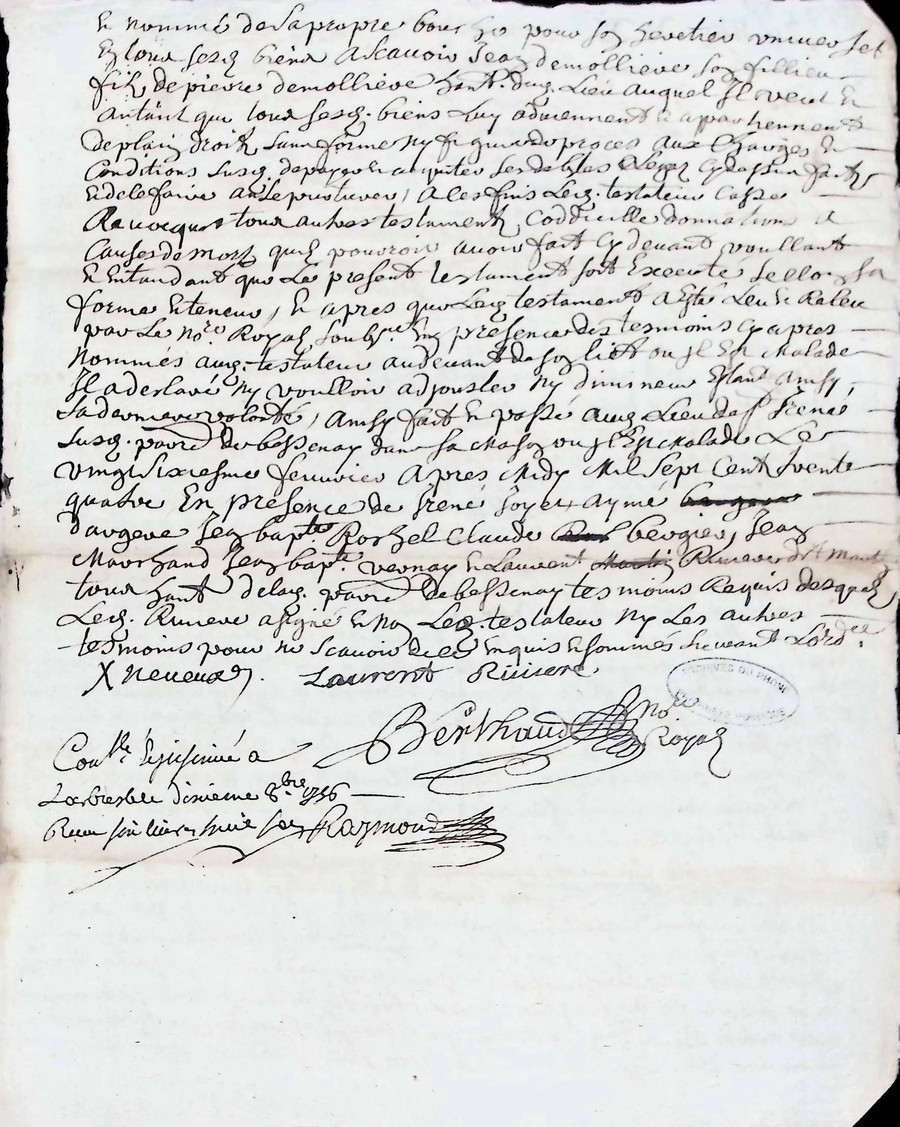 et nommé de sa propre bouche pour son heretier universel
En tous sesd. biens a scavoir Jean demolliere son fillieu
fils de pierre demolliere hant. dud. Lieu auquel Il veut et
antant que tous sesd. biens Luy adviennent et appartiennent
de plain droit sans forme ny figure de proces aux Charges et
Conditions susd. de payer et acquiter ses debtes Legaz cy dessus faits
et de le faire
a les fins Led. testateur Casse
Revocque tous autres testaments, Coddicille donnations a
Causes de mort quil pouvoit avoir fait cy devant voullant
et Entandant que Le present testament soit Execute sellon sa
forme et teneur, Et apres que Led. testament a Esté Leu et Releu
par Le no.re Royal soubs.né En presence des tesmoins cy apres
Nommés aud. testateur au devant de son lict ou Il Est Malade
Il a declaré ny voulloir adjouster ny diminuer Estant Ainsy
sa derniere volonté, Ainsy fait et passé aud. Lieu de
susd. parr. de bessenay dans sa Maison ou Il Est Malade Le
vingt sixiesme fevrier apres Midy Mil sept Cent trente
quatre En presence de Aymé
dargere Jean bapte Rochel Claude bergier, Jean
Marchand Jean bapt.e vernay et Laurent Riviere
tous hant. de lad. parr. de bessenay tesmoins Requis desquels
Led. Riviere a signé et non Led. testateur Ny Les autres
tesmoins pour ne scavoir de ce Enquis et sommés suivant L'ord.ce
Laurent Riviere
Berthaud no.re
Royal
Con.lle et insinué a
Larbresle dixieme 8.bre 1736
Receu six livres Raymond
ARCHIVES DU RHONE